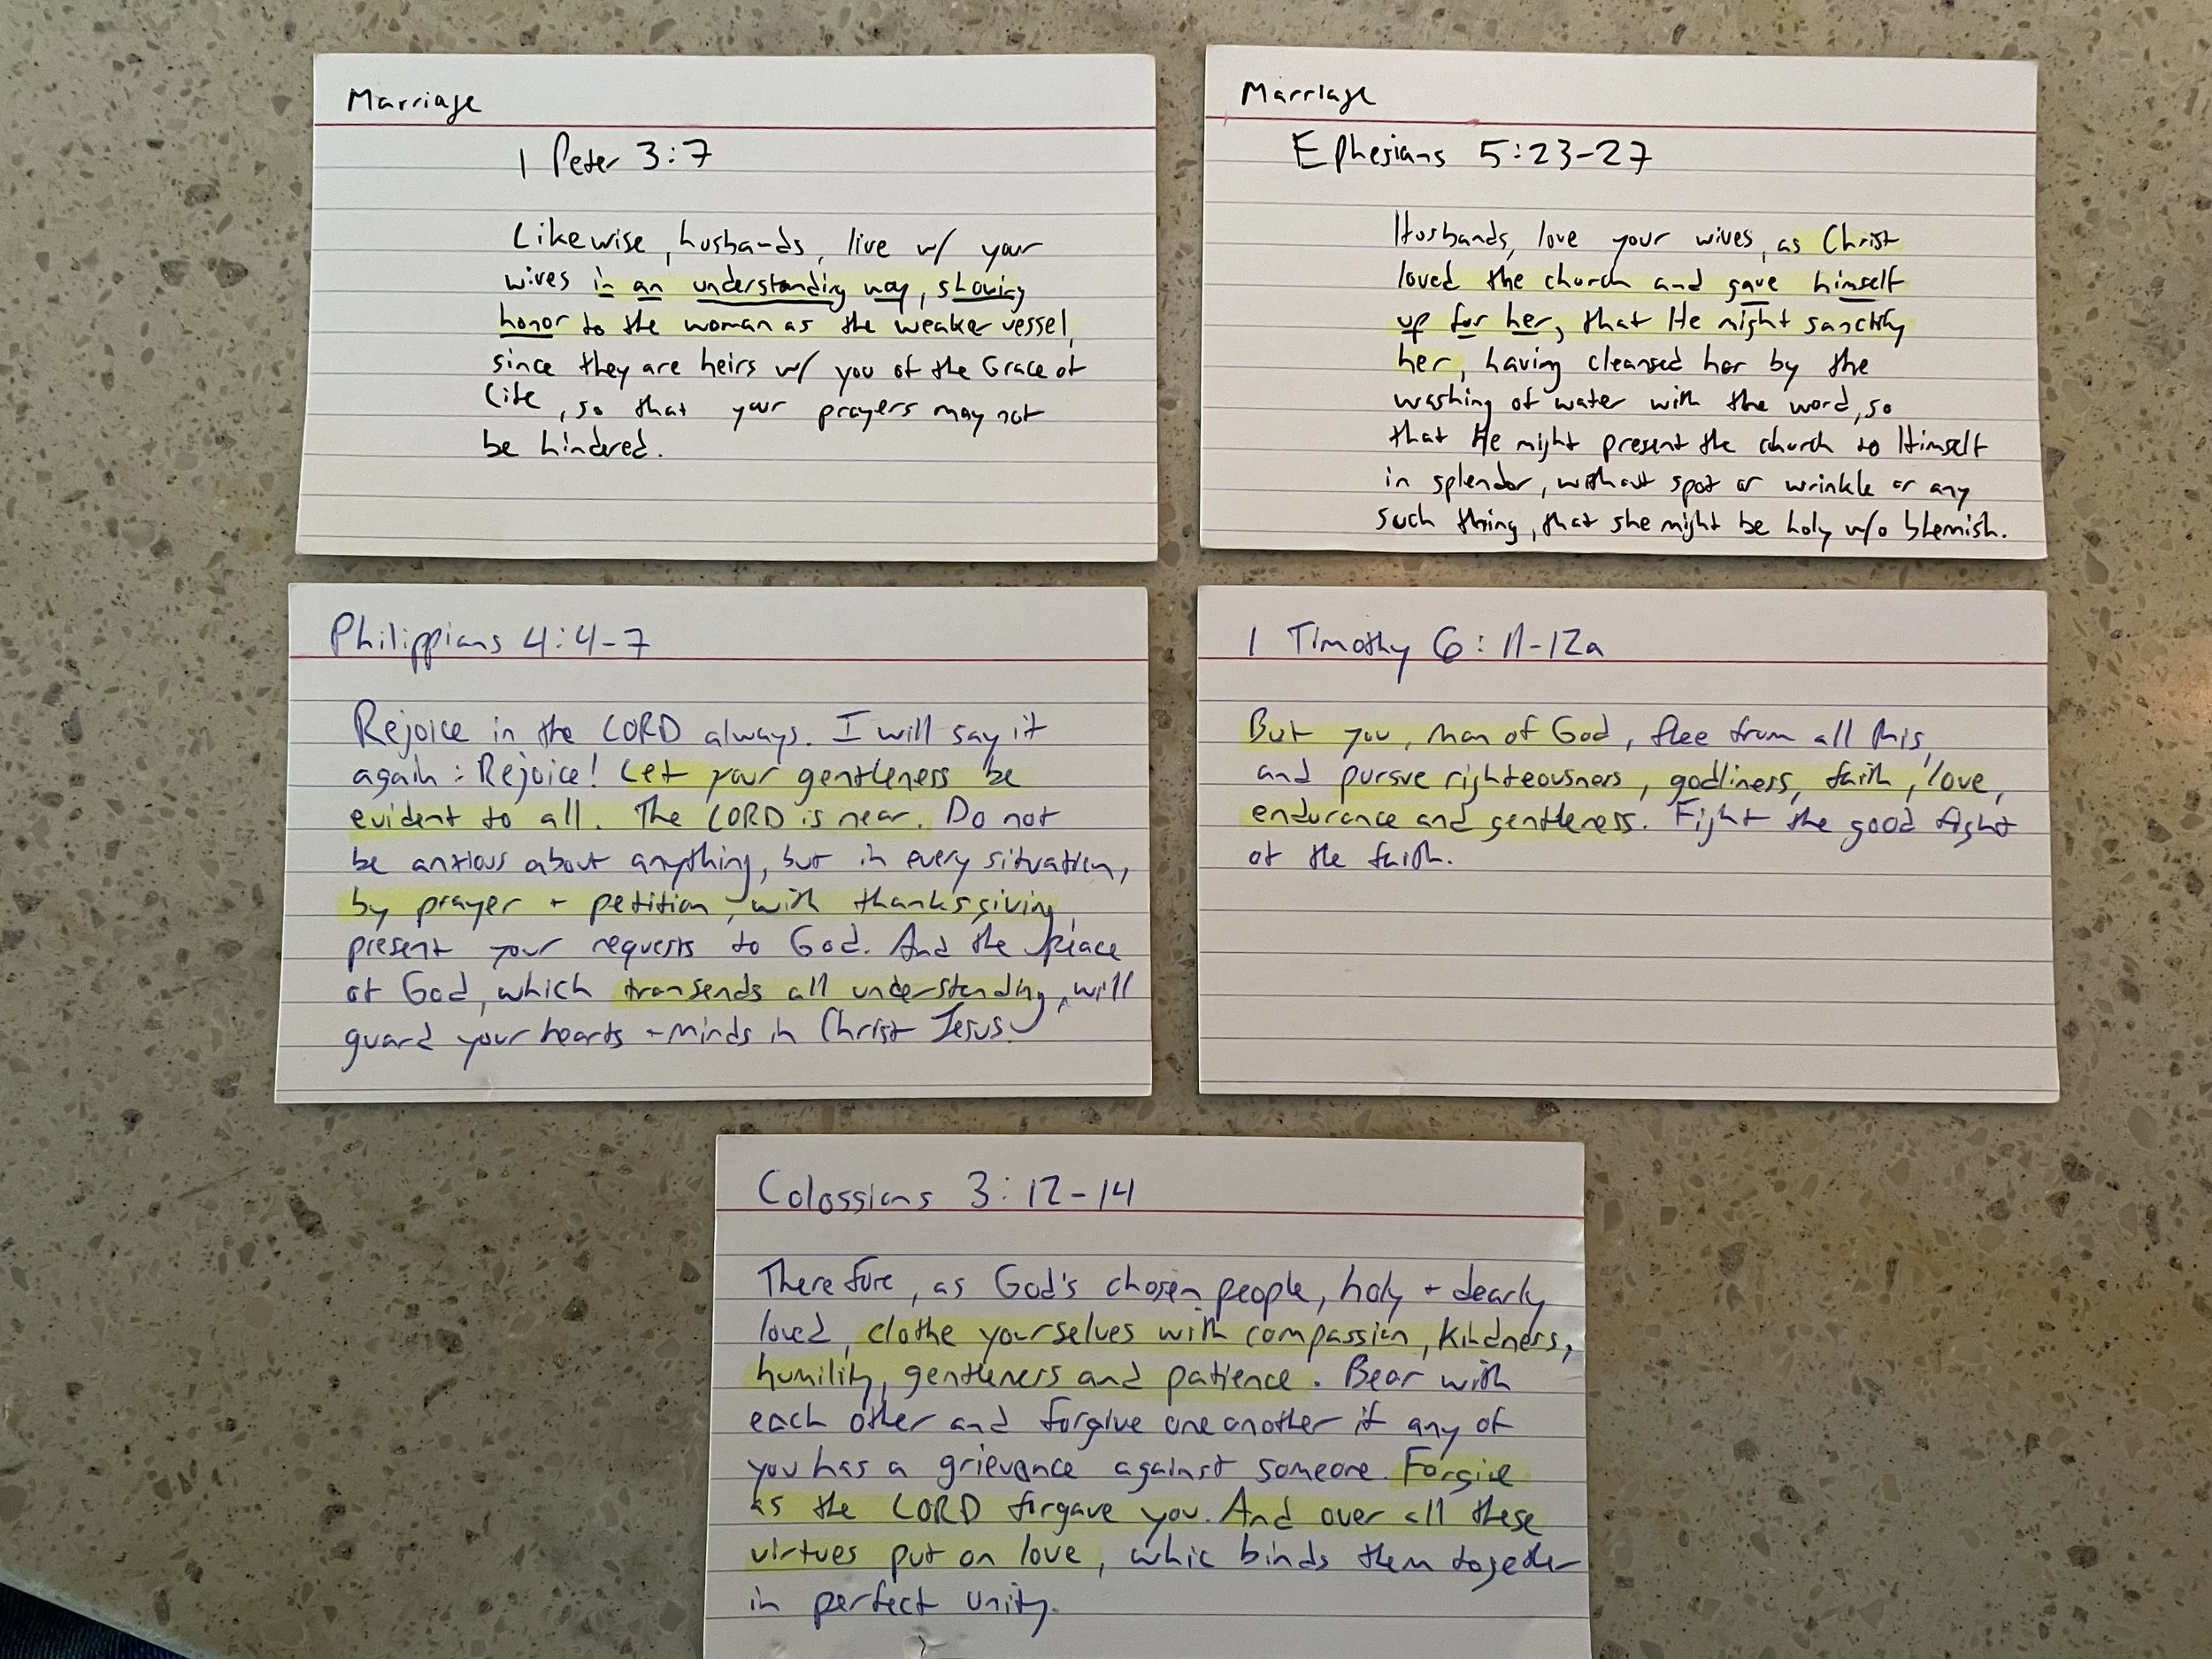 Marriage
1 Peter 3:7
Likewise, husbands, live w/ your
wives in an understanding way, showing
honor to the woman as the weaker vessel,
since they are heirs w/ you of the Grace of
life, so that your prayers may not
be hindered.
Marriage
Ephesians 5:23-27
Husbands, love your wives, as Christ
loved the church and gave himself
up for her, that He might sanctify
her, having cleansed her by the
washing of water with the word, so
that He might present the church to Himself
in splendor, without spot or wrinkle or any
such thing, that she might be holy w/o blemish.
Philippians 4:4-7
Rejoice in the LORD always. I will say it
again: Rejoice! Let your gentleness be
evident to all. The LORD is near. Do not
be anxious about anything, but in every situation,
by prayer + petition, with thanksgiving,
present your requests to God. And the peace
of God, which transends all understanding, will
guard your hearts + minds in Christ Jesus.
1 Timothy 6:11-12a
But you, man of God, flee from all this,
and pursue righteousness, godliness, faith, love,
endurance and gentleness. Fight the good fight
of the faith.
Colossians 3:12-14
Therefore, as God's chosen people, holy + dearly
loved, clothe yourselves with compassion, kindness,
humility, gentleness and patience. Bear with
each other and forgive one another if any of
you has a grievance against someone. Forgive
as the LORD forgave you. And over all these
virtues put on love, whic binds them together
in perfect unity.